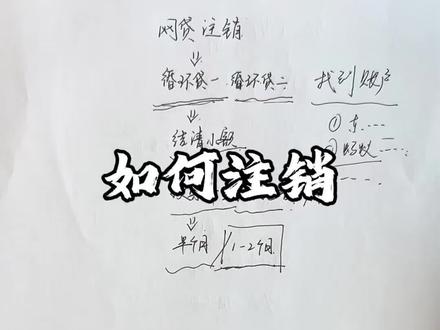 网贷注销
循环贷一 循环贷二
找到账户
① 京----
② 蚂蚁----
结清小额
如何注销
半个月/1-2个月